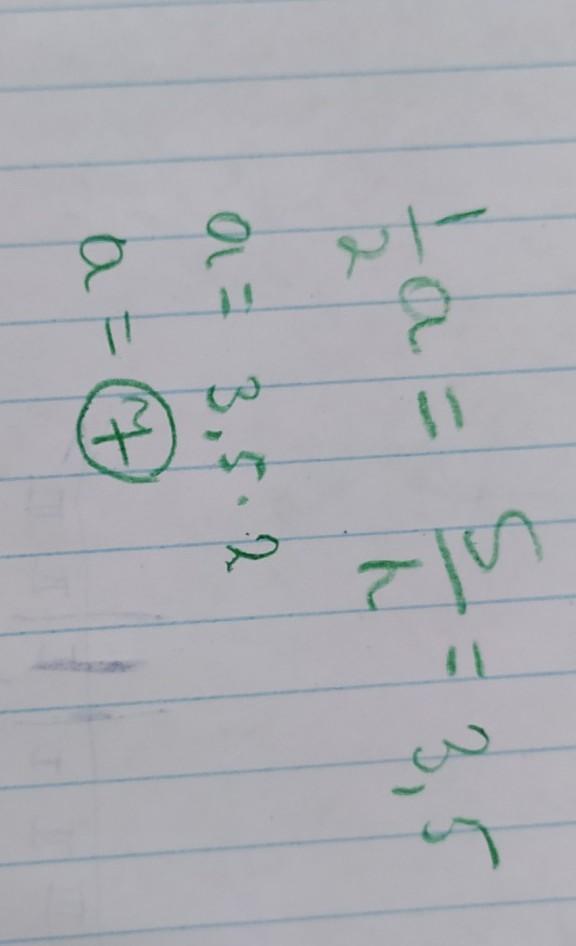 1/2 a = S/h = 3,5
a = 3,5 · 2
a = 7